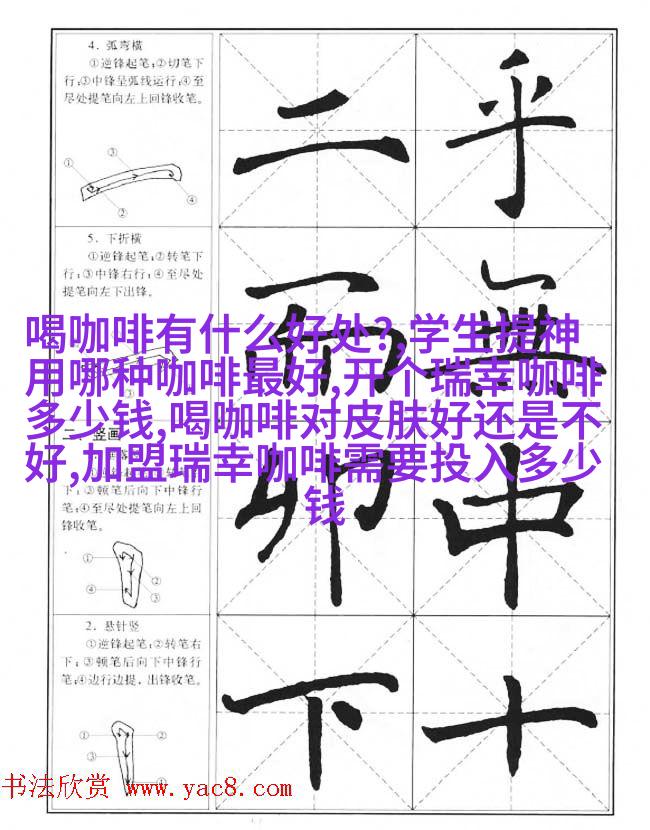 4. 弧弯横
①逆锋起笔;②切笔下
行;③中锋呈弧线运行;④至
尽处提笔向左上回锋收笔。
① ③
② ④
二 乎
5. 下折横
①逆锋起笔;②转笔下
行;③中锋右行;④至尽处
提笔向左下出锋。
而 無
喝咖啡有什么好处?,学生提神
用哪种咖啡最好,开个瑞幸咖啡
多少钱,喝咖啡对皮肤好还是不
好,加盟瑞幸咖啡需要投入多少
钱
③
二、竖画
下;③顿笔后向下中锋行
笔;④至尽处提笔向左上回
锋收笔。
①
② 
④ ③
卯 中
2. 悬针竖
①逆锋起笔;②转笔右
下;③顿笔后向下中锋行
笔;④边行边提，出锋收笔。
① ②
③
④
下 十
书法欣赏 www.yac8.com